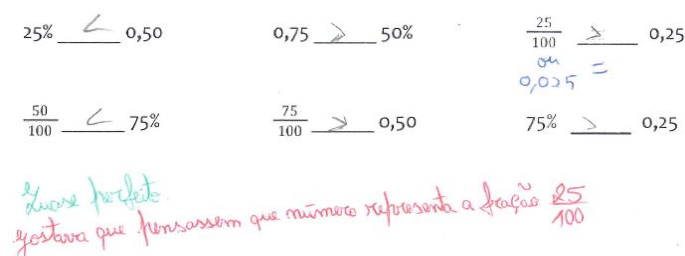 25% < 0,50 0,75 > 50% 25/100 > 0,25
ou
0,025 =
50/100 < 75% 75/100 > 0,50 75% > 0,25
Quase perfeito.
Gostava que pensassem que número representa a fração 25/100